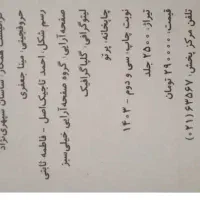 ساسان سپهری‌نژاد
حروفچینی: مینا جعفری
رسم شکل: احمد تاجیک‌اصل - فاطمه ثابتی
صفحه‌آرایی: گروه صفحه‌آرایی خیلی‌سبز
لیتوگرافی: گلپاگرافیک
چاپخانه: پرتو
نوبت چاپ: سی و دوم - ۱۴۰۳
تیراژ: ۲۵۰۰ جلد
قیمت: ۲۹۰۰۰۰ تومان
تلفن مرکز پخش: ۶۳۵۶۷ (۰۲۱)